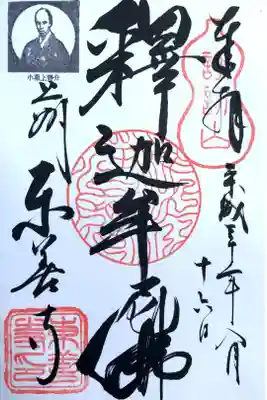 奉拝
平成三十年八月
十六日
釋迦牟尼佛
小栗上野介
上州
東善寺